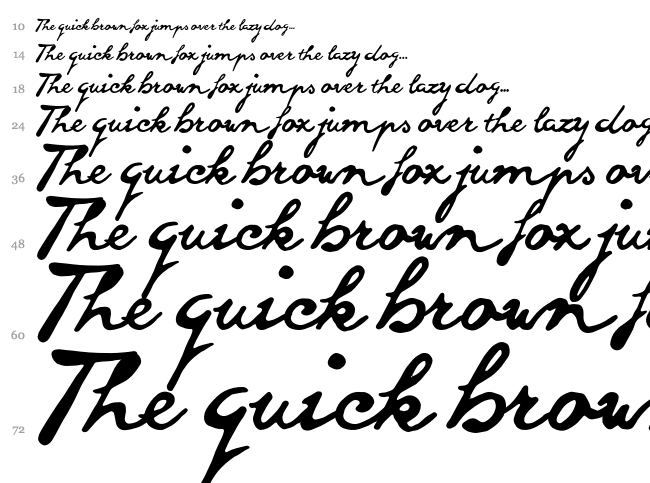 10 The quick brown fox jumps over the lazy dog...
14 The quick brown fox jumps over the lazy dog...
18 The quick brown fox jumps over the lazy dog...
24 The quick brown fox jumps over the lazy dog
36 The quick brown fox jumps ov
48 The quick brown fox ju
60 The quick brown f
72 The quick brow